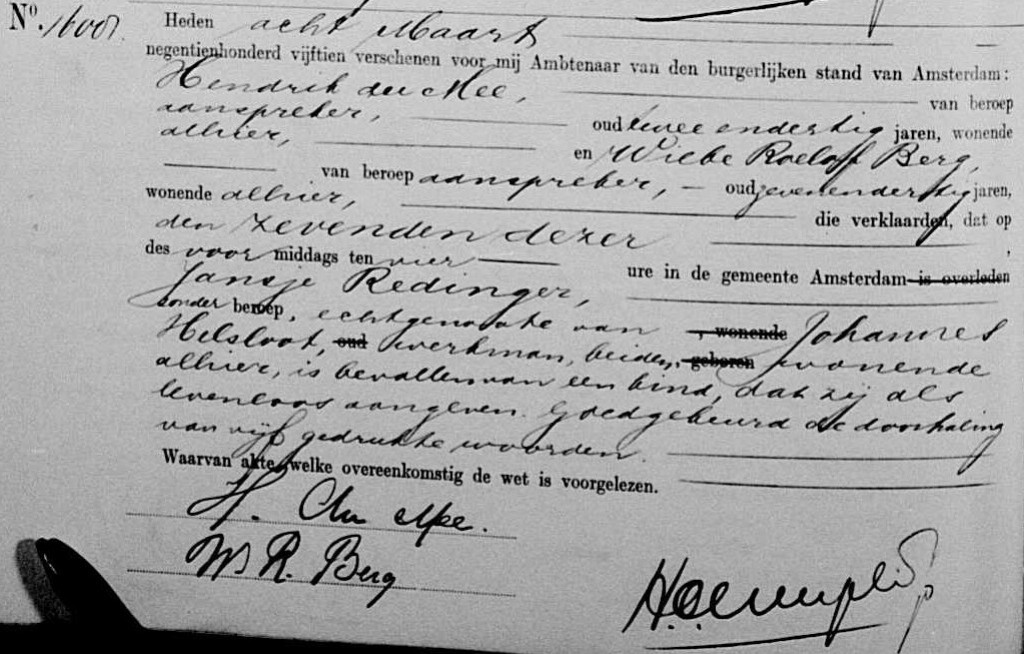 Nº. 1600.
Heden acht Maart
negentienhonderd vijftien verschenen voor mij Ambtenaar van den burgerlijken stand van Amsterdam:
Hendrik du Mée, van beroep
aanspreker, oud twee endertig jaren, wonende
alhier, en Wiebe Roeloff Berg,
van beroep aanspreker, – oud zevenendertig jaren,
wonende alhier, die verklaarden, dat op
den zevenden dezer ,
des voor middags ten vier ure in de gemeente Amsterdam is overleden
Jansje Redinger,
zonder beroep, echtgenoote van , wonende Johannes
Helsloot, oud werkman, beiden, geboren wonende
alhier, is bevallen van een kind, dat zij als
levenloos aangeven. Goedgekeurd de doorhaling
van vijf gedrukte woorden.
Waarvan akte, welke overeenkomstig de wet is voorgelezen.
H. du Mée.
W. R. Berg